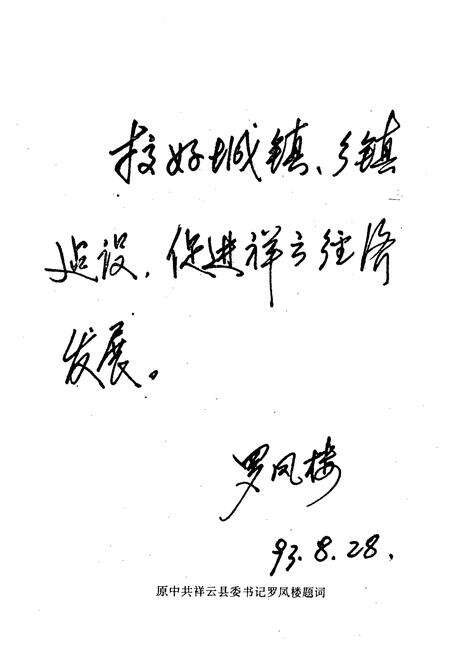 搞好城镇、乡镇
建设，促进祥云经济
发展。
罗凤楼
93.8.28.
原中共祥云县委书记罗凤楼题词